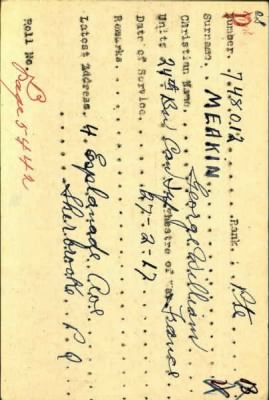 D 08
Number. 748012 Rank. Pte
Surname. MEAKIN
Christian Name. George William
Unit. 24th Bn Can Inf Theatre of War France
Date of Service. 27-2-17
Remarks.
Latest Address. 4 Esplanade Ave
Sherbrooke. P Q
Roll No. B
Page 5442